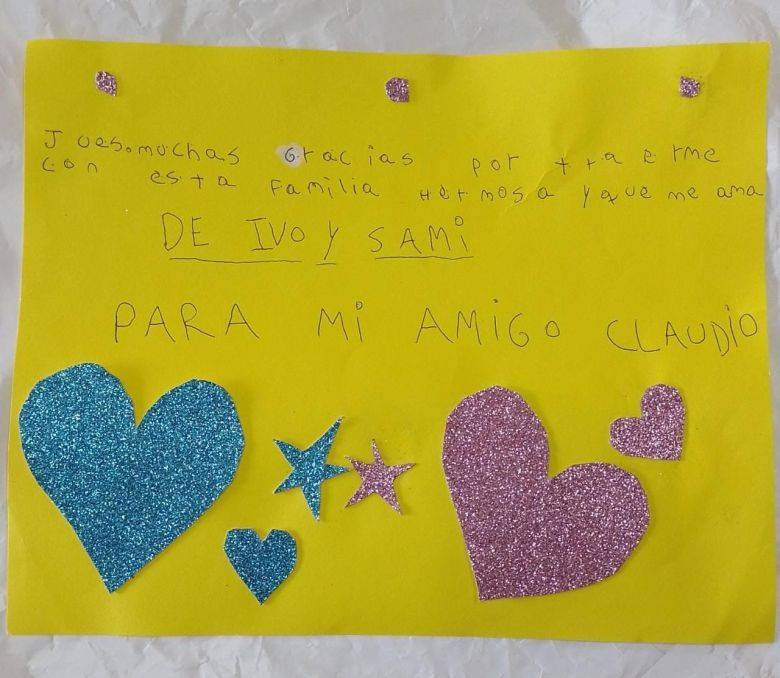 Jues.muchas Gracias por traerme
con esta familia Hermosa y que me ama
DE IVO Y SAMi
PARA Mi AMiGO CLAUDiO